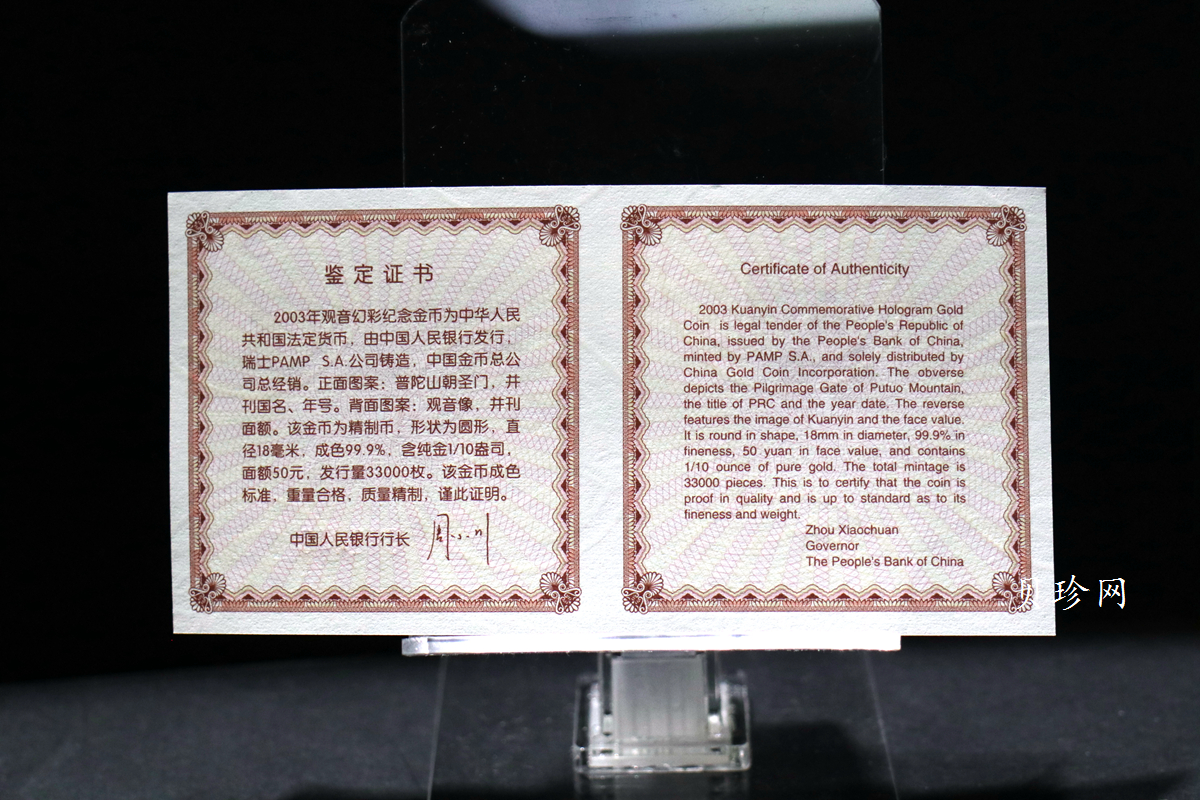 鉴定证书
2003年观音幻彩纪念金币为中华人民
共和国法定货币，由中国人民银行发行，
瑞士PAMP S.A.公司铸造，中国金币总公
司总经销。正面图案：普陀山朝圣门，并
刊国名、年号。背面图案：观音像，并刊
面额。该金币为精制币，形状为圆形，直
径18毫米，成色99.9%，含纯金1/10盎司，
面额50元，发行量33000枚。该金币成色
标准，重量合格，质量精制，谨此证明。
中国人民银行行长 周小川
Certificate of Authenticity
2003 Kuanyin Commemorative Hologram Gold
Coin is legal tender of the People's Republic of
China, issued by the People's Bank of China,
minted by PAMP S.A., and solely distributed by
China Gold Coin Incorporation. The obverse
depicts the Pilgrimage Gate of Putuo Mountain,
the title of PRC and the year date. The reverse
features the image of Kuanyin and the face value.
It is round in shape, 18mm in diameter, 99.9% in
fineness, 50 yuan in face value, and contains
1/10 ounce of pure gold. The total mintage is
33000 pieces. This is to certify that the coin is
proof in quality and is up to standard as to its
fineness and weight.
Zhou Xiaochuan
Governor
The People's Bank of China
珍网